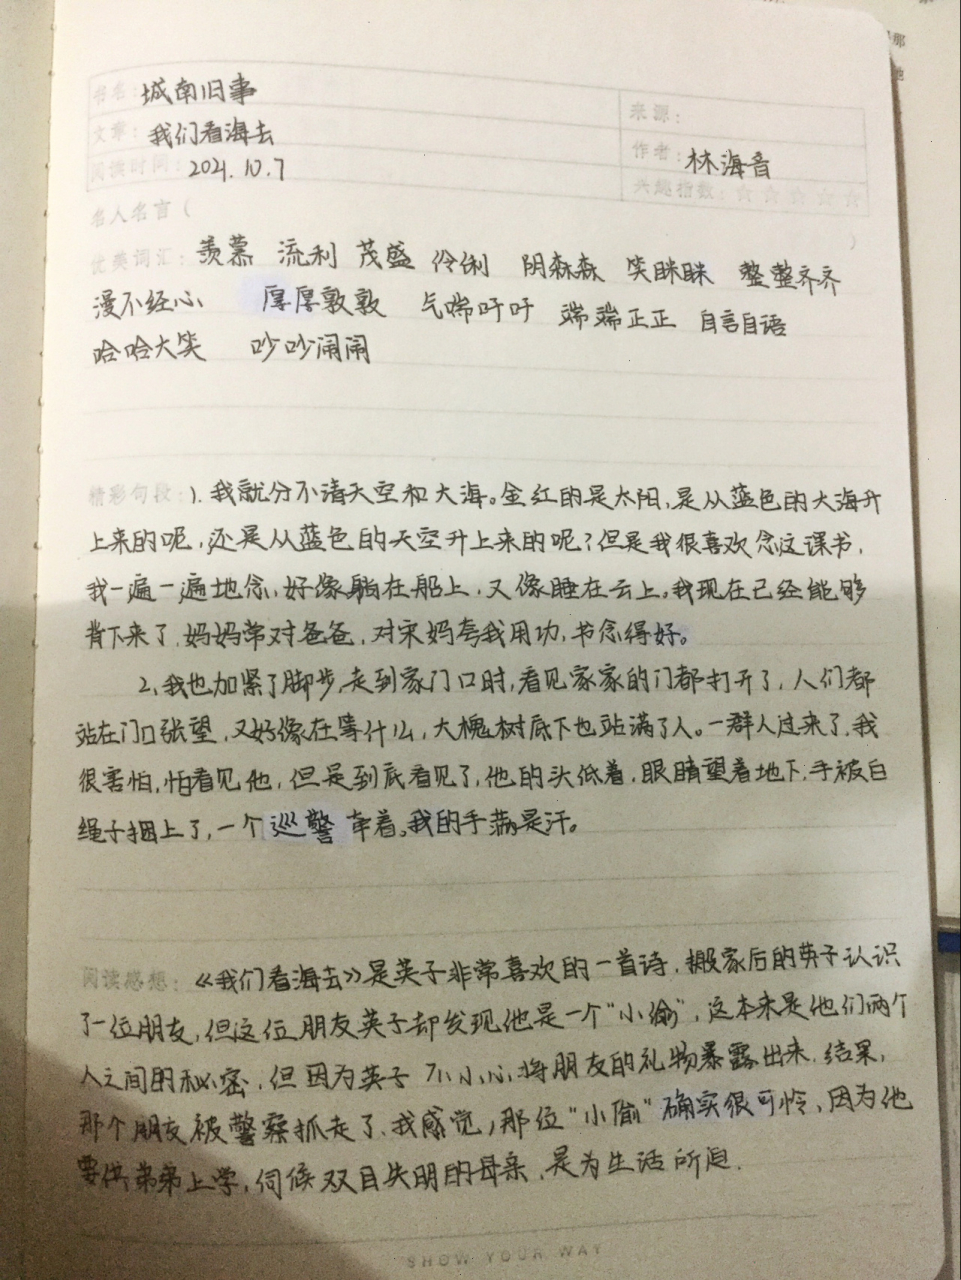 书名: 城南旧事
来源:
文章: 我们看海去
作者: 林海音
阅读时间: 2021.10.7
兴趣指数: ☆☆☆☆☆
名人名言 ( )
优美词汇: 羡慕 流利 茂盛 伶俐 阴森森 笑眯眯 整整齐齐
漫不经心 厚厚敦敦 气喘吁吁 端端正正 自言自语
哈哈大笑 吵吵闹闹
精彩句段: 1. 我就分不清天空和大海。金红的是太阳,是从蓝色的大海升
上来的呢,还是从蓝色的天空升上来的呢?但是我很喜欢念这课书,
我一遍一遍地念,好像躺在船上,又像睡在云上。我现在已经能够
背下来了,妈妈常对爸爸,对宋妈夸我用功,书念得好。
2、我也加紧了脚步,走到家门口时,看见家家的门都打开了,人们都
站在门口张望,又好像在等什么,大槐树底下也站满了人。一群人过来了,我
很害怕,怕看见他,但是到底看见了,他的头低着,眼睛望着地下,手被白
绳子捆上了,一个巡警牵着。我的手满是汗。
阅读感想: 《我们看海去》是英子非常喜欢的一首诗,搬家后的英子认识
了一位朋友,但这位朋友英子却发现他是一个“小偷”,这本来是他们两个
人之间的秘密,但因为英子不小心,将朋友的礼物暴露出来,结果,
那个朋友被警察抓走了,我感觉,那位“小偷”确实很可怜,因为他
要供弟弟上学,伺候双目失明的母亲,是为生活所迫.
SHOW YOUR WAY